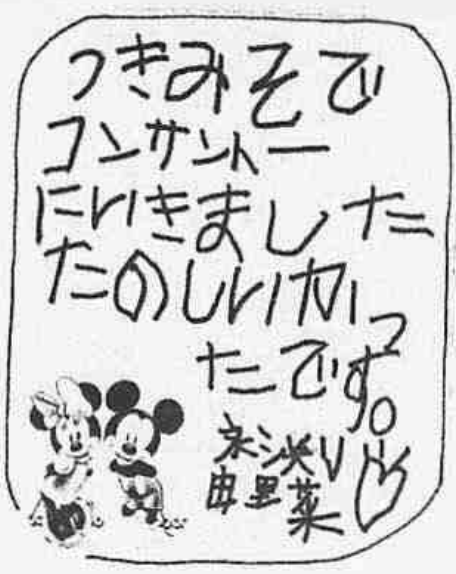 つきみそで
コンサントー
にいきました
たのしいかっ
たです。
由里菜